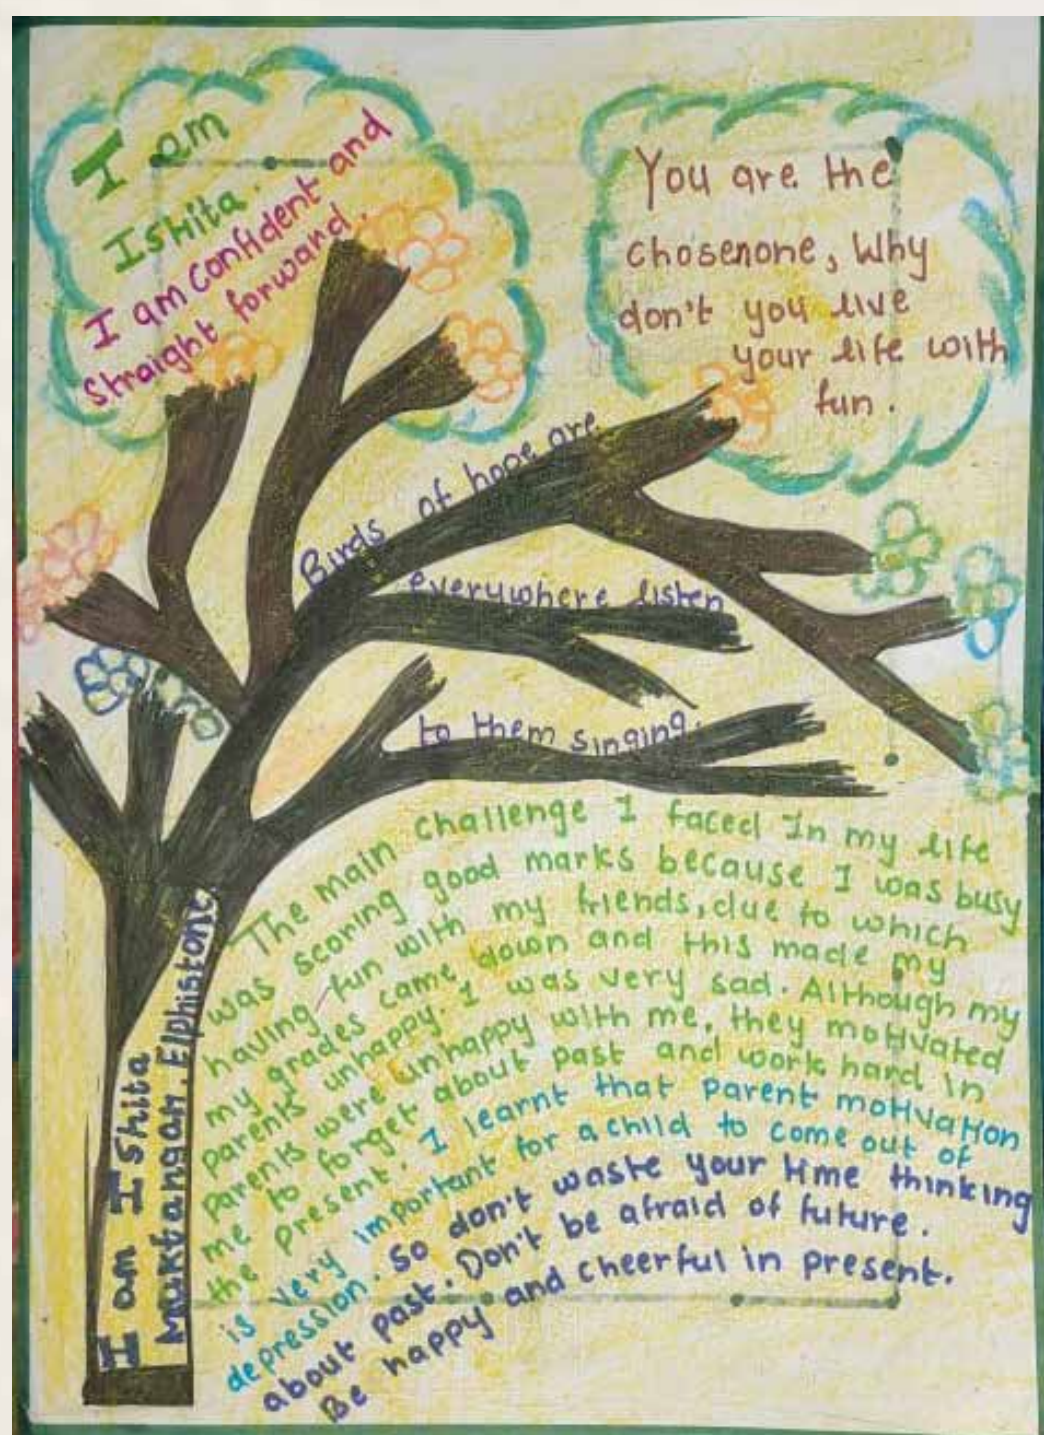 I am
Ishita.
I am confident and
straight forward.
You are the
chosenone, Why
don't you live
your life with
fun.
Birds of hope are
everywhere listen
to them singing.
The main challenge I faced In my life
was scoring good marks because I was busy
having fun with my friends, due to which
my grades came down and this made my
parents unhappy. I was very sad. Although my
parents were unhappy with me, they motivated
me to forget about past and work hard in
the present. I learnt that parent motivation
is very important for a child to come out of
depression. So don't waste your time thinking
about past. Don't be afraid of future.
Be happy and cheerful in present.
I am Ishita
Muktangan. Elphistone